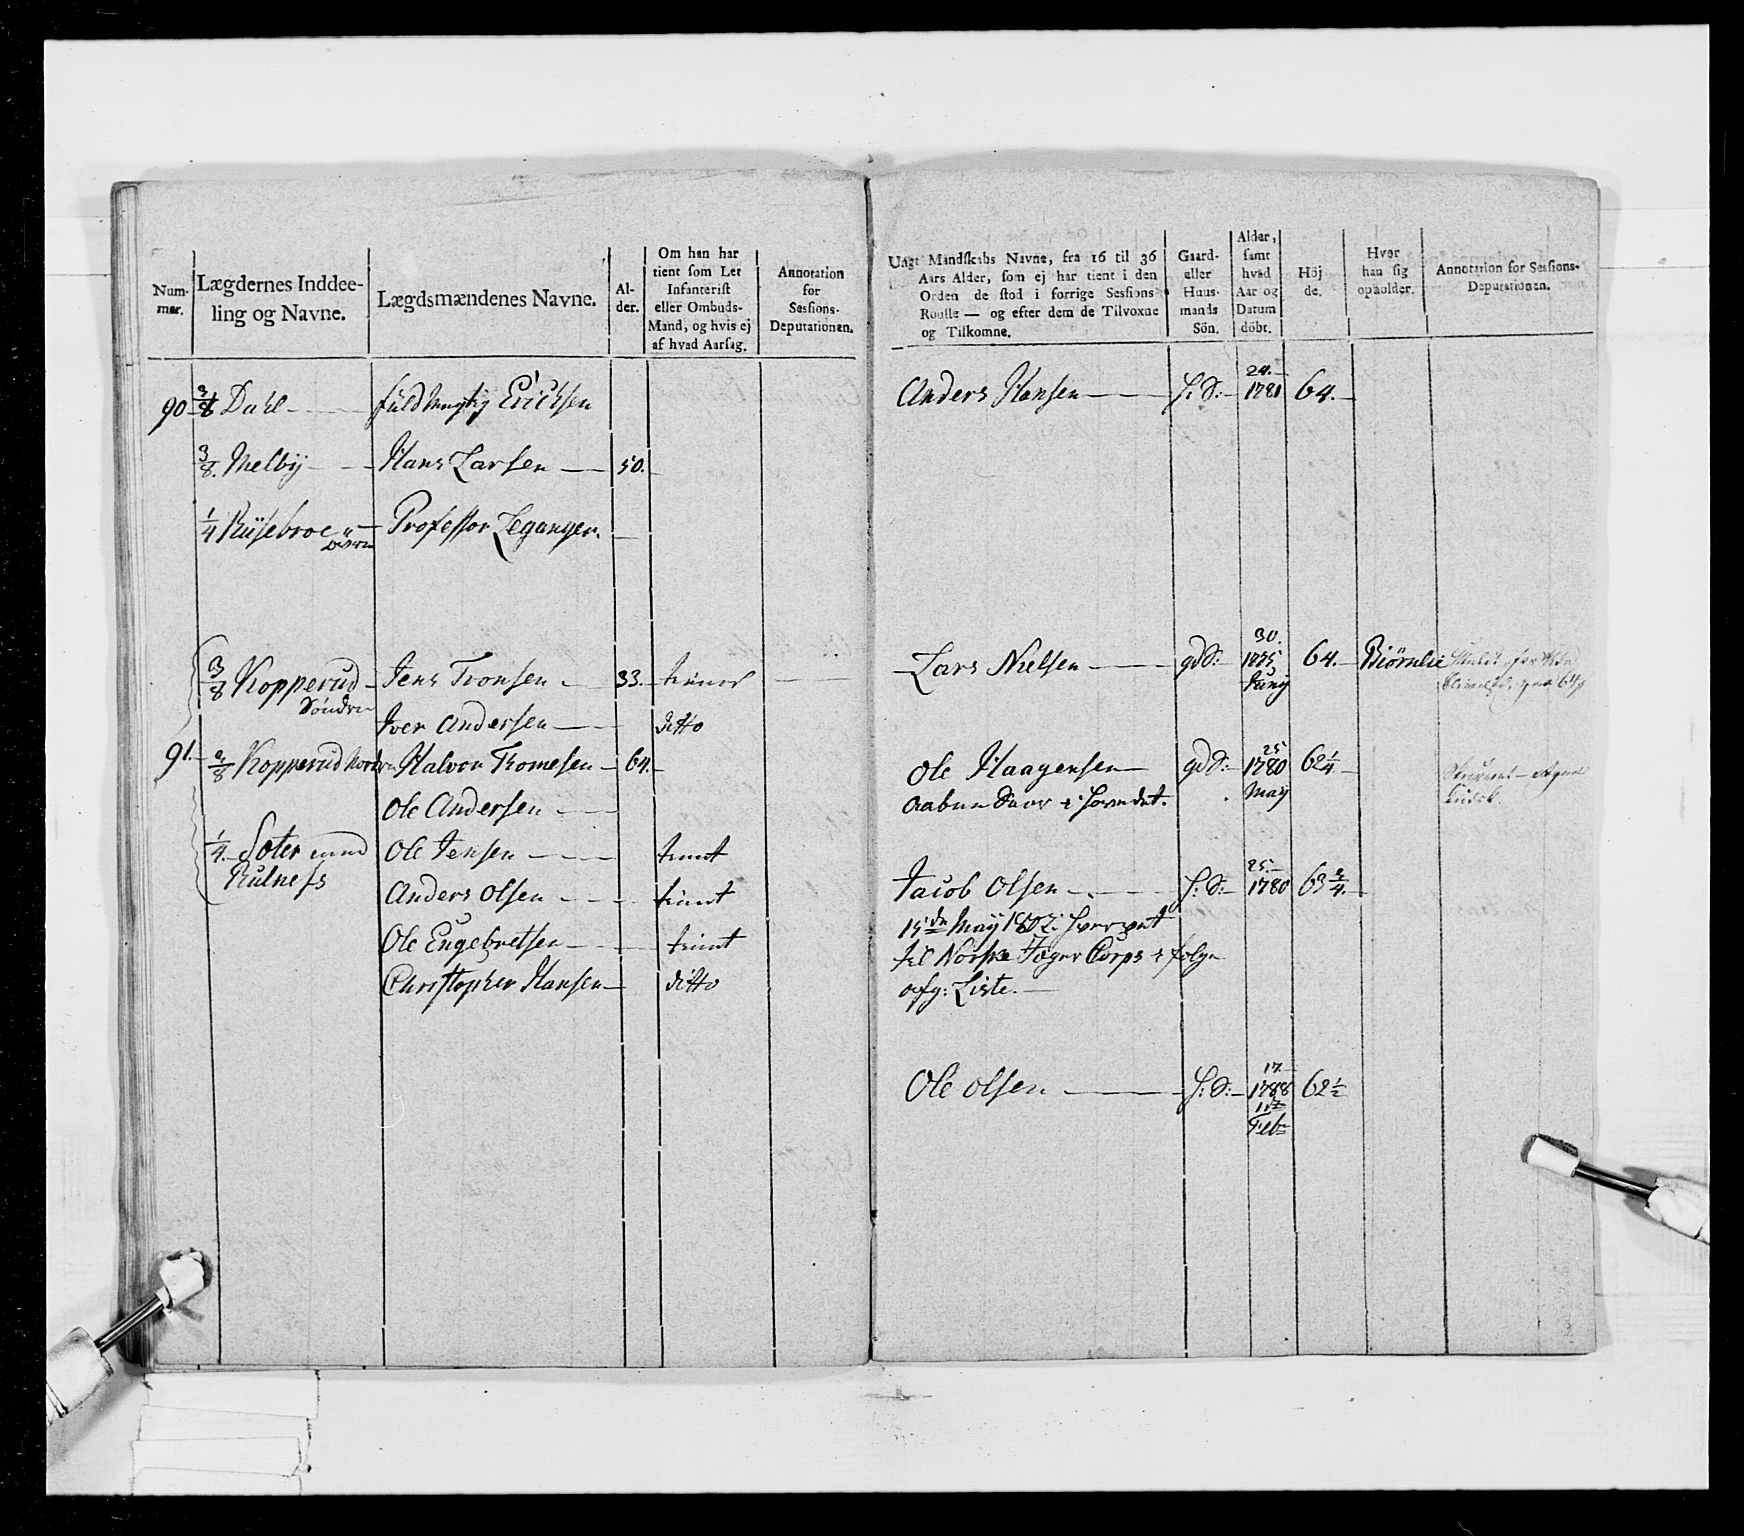 Num-
mer.
Lægdernes Inddee-
ling og Navne.
Lægdsmændenes Navne.
Al-
der.
Om han har
tient som Let
Infanterist
eller Ombuds-
Mand, og hvis ej
af hvad Aarsag.
Annotation
for
Sessions-
Deputationen.
90 3/8 Dahl - fuldmegtig Erichsen
3/8. Melbÿ - Hans Larsen - 50.
1/4 Riisebroe - Professor Leganger.
Kopperud - Jens Tronsen - 33.
3/8 Søndre
Iver Andersen - ditto
91. 3/8 Kopperud Nordre Halvor Tromesen - 64.
Ole Andersen -
1/4. Soter med Ole Jensen - tient
Rulnefs
Anders Olsen - tient
Ole Engebretsen - tient
Christopher Hansen - ditto
Ungt Mandskabs Navne, fra 16 til 36
Aars Alder, som ej har tient i den
Orden de stod i forrige Sessions-
Roulle — og efter dem de Tilvoxne
og Tilkomne.
Gaard-
eller
Huus-
mands
Sön.
Alder,
samt
hvad
Aar og
Datum
döbt.
Höj
de.
Hvor
han sig
opholder.
Annotation for Sessions-
Deputationen.
24.
Anders Hansen - H: S: - 1781 64.
30.
Lars Nielsen - gdS: 1775 64. - Biørnlie
Junÿ
25
Ole Haagensen - gdS: - 1780 62 1/4 -
May
25.
Jacob Olsen - H: S: - 1780 63 3/4. -
15de Maÿ 1802
til Norske Jæger Corps i følge
afg: Liste. -
17.
Ole Olsen - H: S: - 1788 62 1/2
11te
Feb